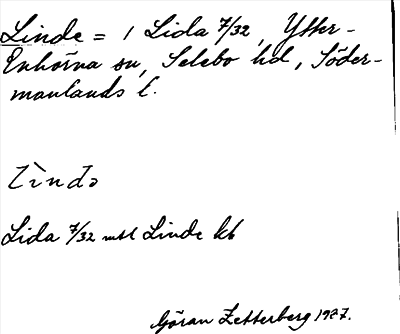 Linde = 1 Lida 7/32, Ytter-
Enhörna sn, Selebo hd, Söder-
manlands l.
Lìndə
Lida 7/32 mtl Linde kb
Göran Zetterberg 1927.